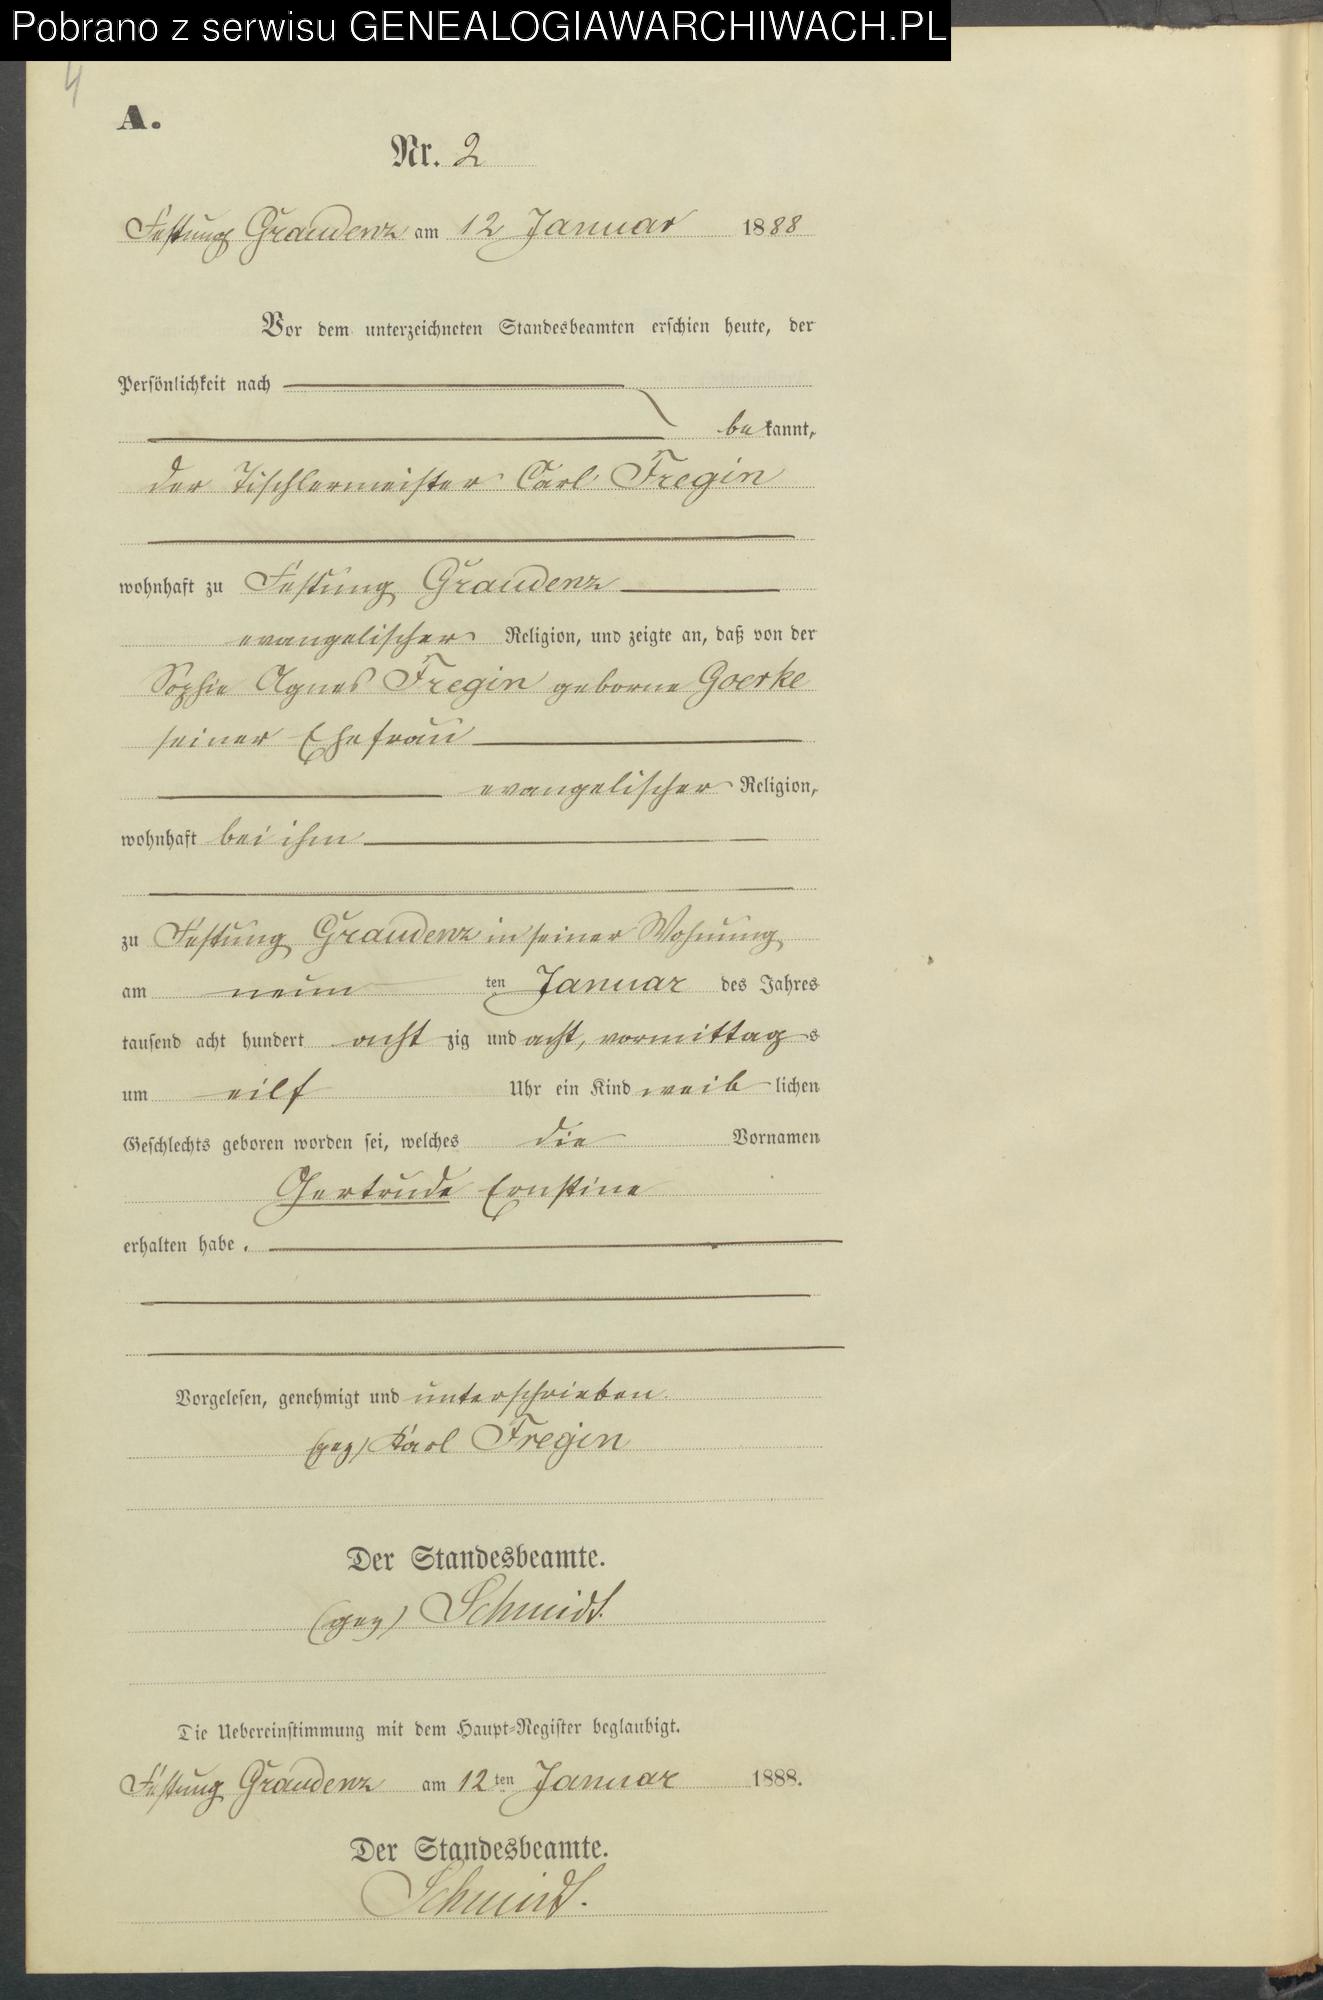 Pobrano z serwisu GENEALOGIAWARCHIWACH.PL
4
A.
Nr. 2
Festung Graudenz am 12 Januar 1888
Vor dem unterzeichneten Standesbeamten erschien heute, der
Persönlichkeit nach
be kannt,
der Tischlermeister Carl Fregin
wohnhaft zu Festung Graudenz
evangelischer Religion, und zeigte an, daß von der
Sophie Agnes Fregin geborne Goerke
seiner Ehefrau
evangelischer Religion,
wohnhaft bei ihm
zu Festung Graudenz in seiner Wohnung
am neun ten Januar des Jahres
tausend acht hundert acht zig und acht, vormittag s
um eilf Uhr ein Kind weib lichen
Geschlechts geboren worden sei, welches die Vornamen
Gertrude Ernstine
erhalten habe.
Vorgelesen, genehmigt und unterschrieben
(gez) Karl Fregin
Der Standesbeamte.
(gez) Schmidt
Die Uebereinstimmung mit dem Haupt-Register beglaubigt.
Festung Graudenz am 12 ten Januar 1888.
Der Standesbeamte.
Schmidt.